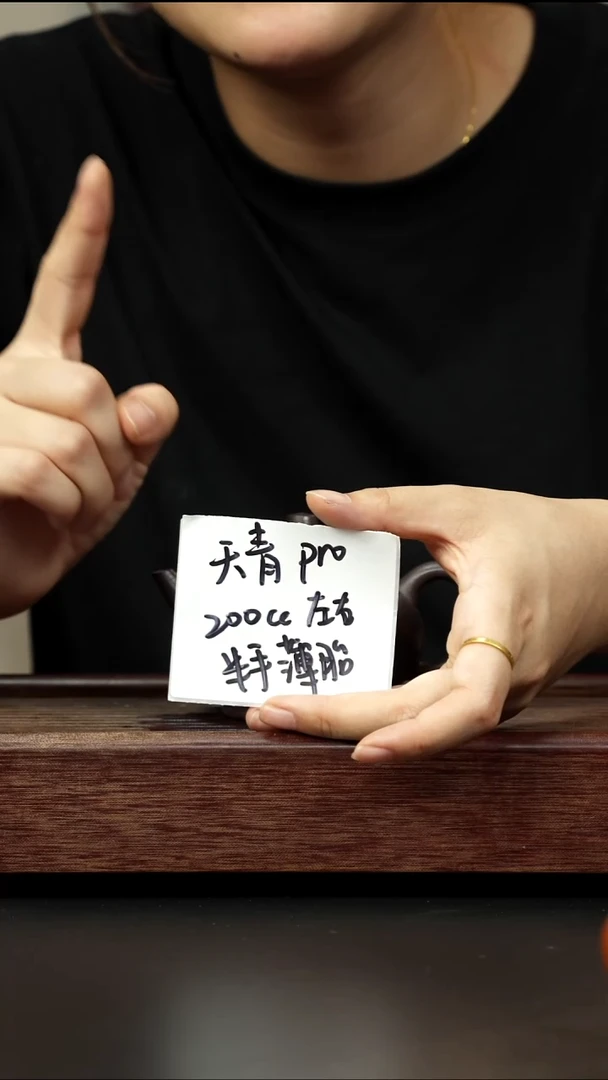 天青 pro
200cc 左右
半手薄胎